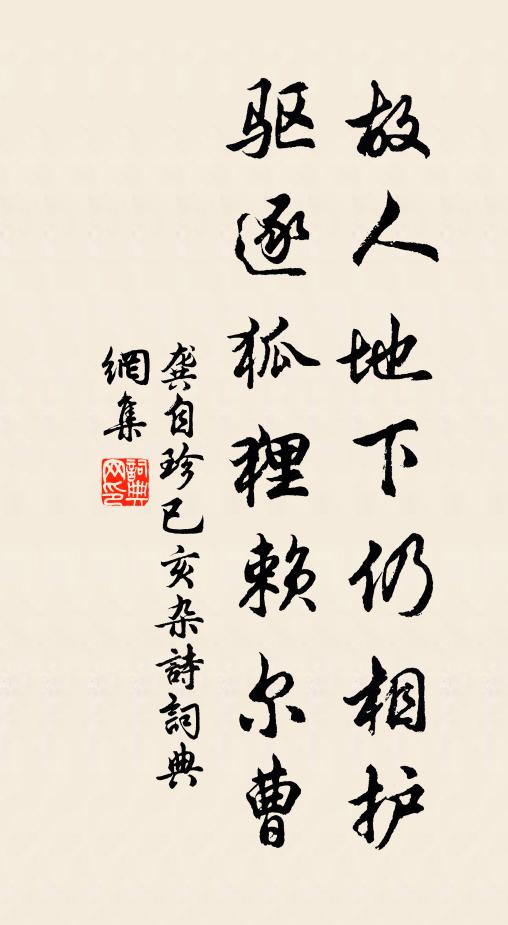 故人地下仍相护
驱逐狐狸赖尔曹
龚自珍己亥杂詩詞典
網集
詞典網印